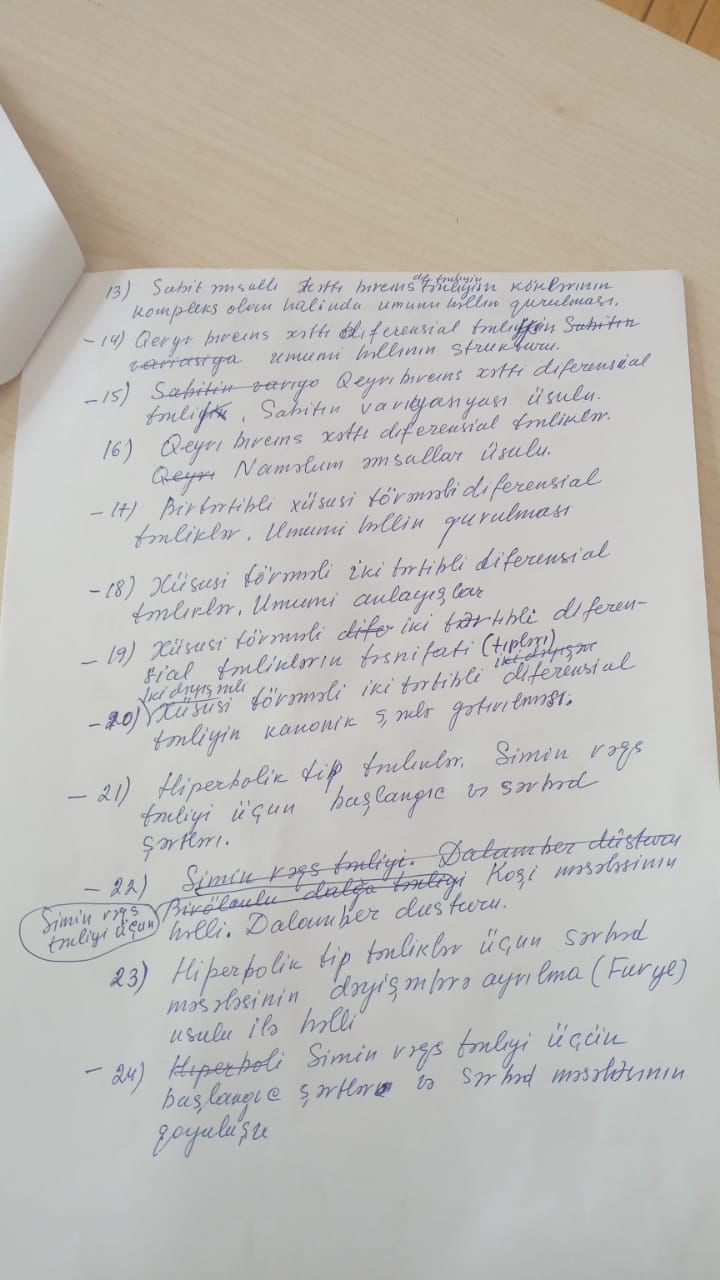 13) Sabit əmsallı xətti bircins dif. tənliyin tənliyin köklərinin
kompleks olan halında umumi həllin qurulması.
- 14) Qeyri bircins xətti diferensial tənliyin Sabitin
variasiya umumi həllinin strukturu.
- 15) Sabitin variyo Qeyri bircins xətti diferensial
tənliyin. Sabitin variyasiyası üsulu.
16) Qeyri bircins xətti diferensial tənliklər.
Qeyri Naməlum əmsallar üsulu.
- 17) Birtərtibli xüsusi törəməli diferensial
tənliklər. Umumi həllin qurulması
- 18) Xüsusi törəməli iki tərtibli diferensial
tənliklər. Umumi anlayışlar
- 19) Xüsusi törəməli dife iki tərtibli diferen-
sial tənliklərin təsnifatı (tipləri)
iki dəyişənli iki dəyişən
- 20) Xüsusi törəməli iki tərtibli diferensial
tənliyin kanonik şəklə gətirilməsi.
- 21) Hiperbolik tip tənliklər. Simin rəqs
tənliyi üçün başlangıc və sərhəd
şərtləri.
- 22) Simin rəqs tənliyi. Dalamber düsturu
Simin rəqs
tənliyi üçün
Birölçülu dalğa tənliyi Koşi məsələsinin
həlli. Dalamber dusturu.
23) Hiperbolik tip tənliklər üçun sərhəd
məsələsinin dəyişənlərə ayrılma (Furye)
usulu ilə həlli
- 24) Hiperboli Simin rəqs tənliyi üçün
başlangıc şərtləri və sərhəd məsələsinin
qoyuluşu